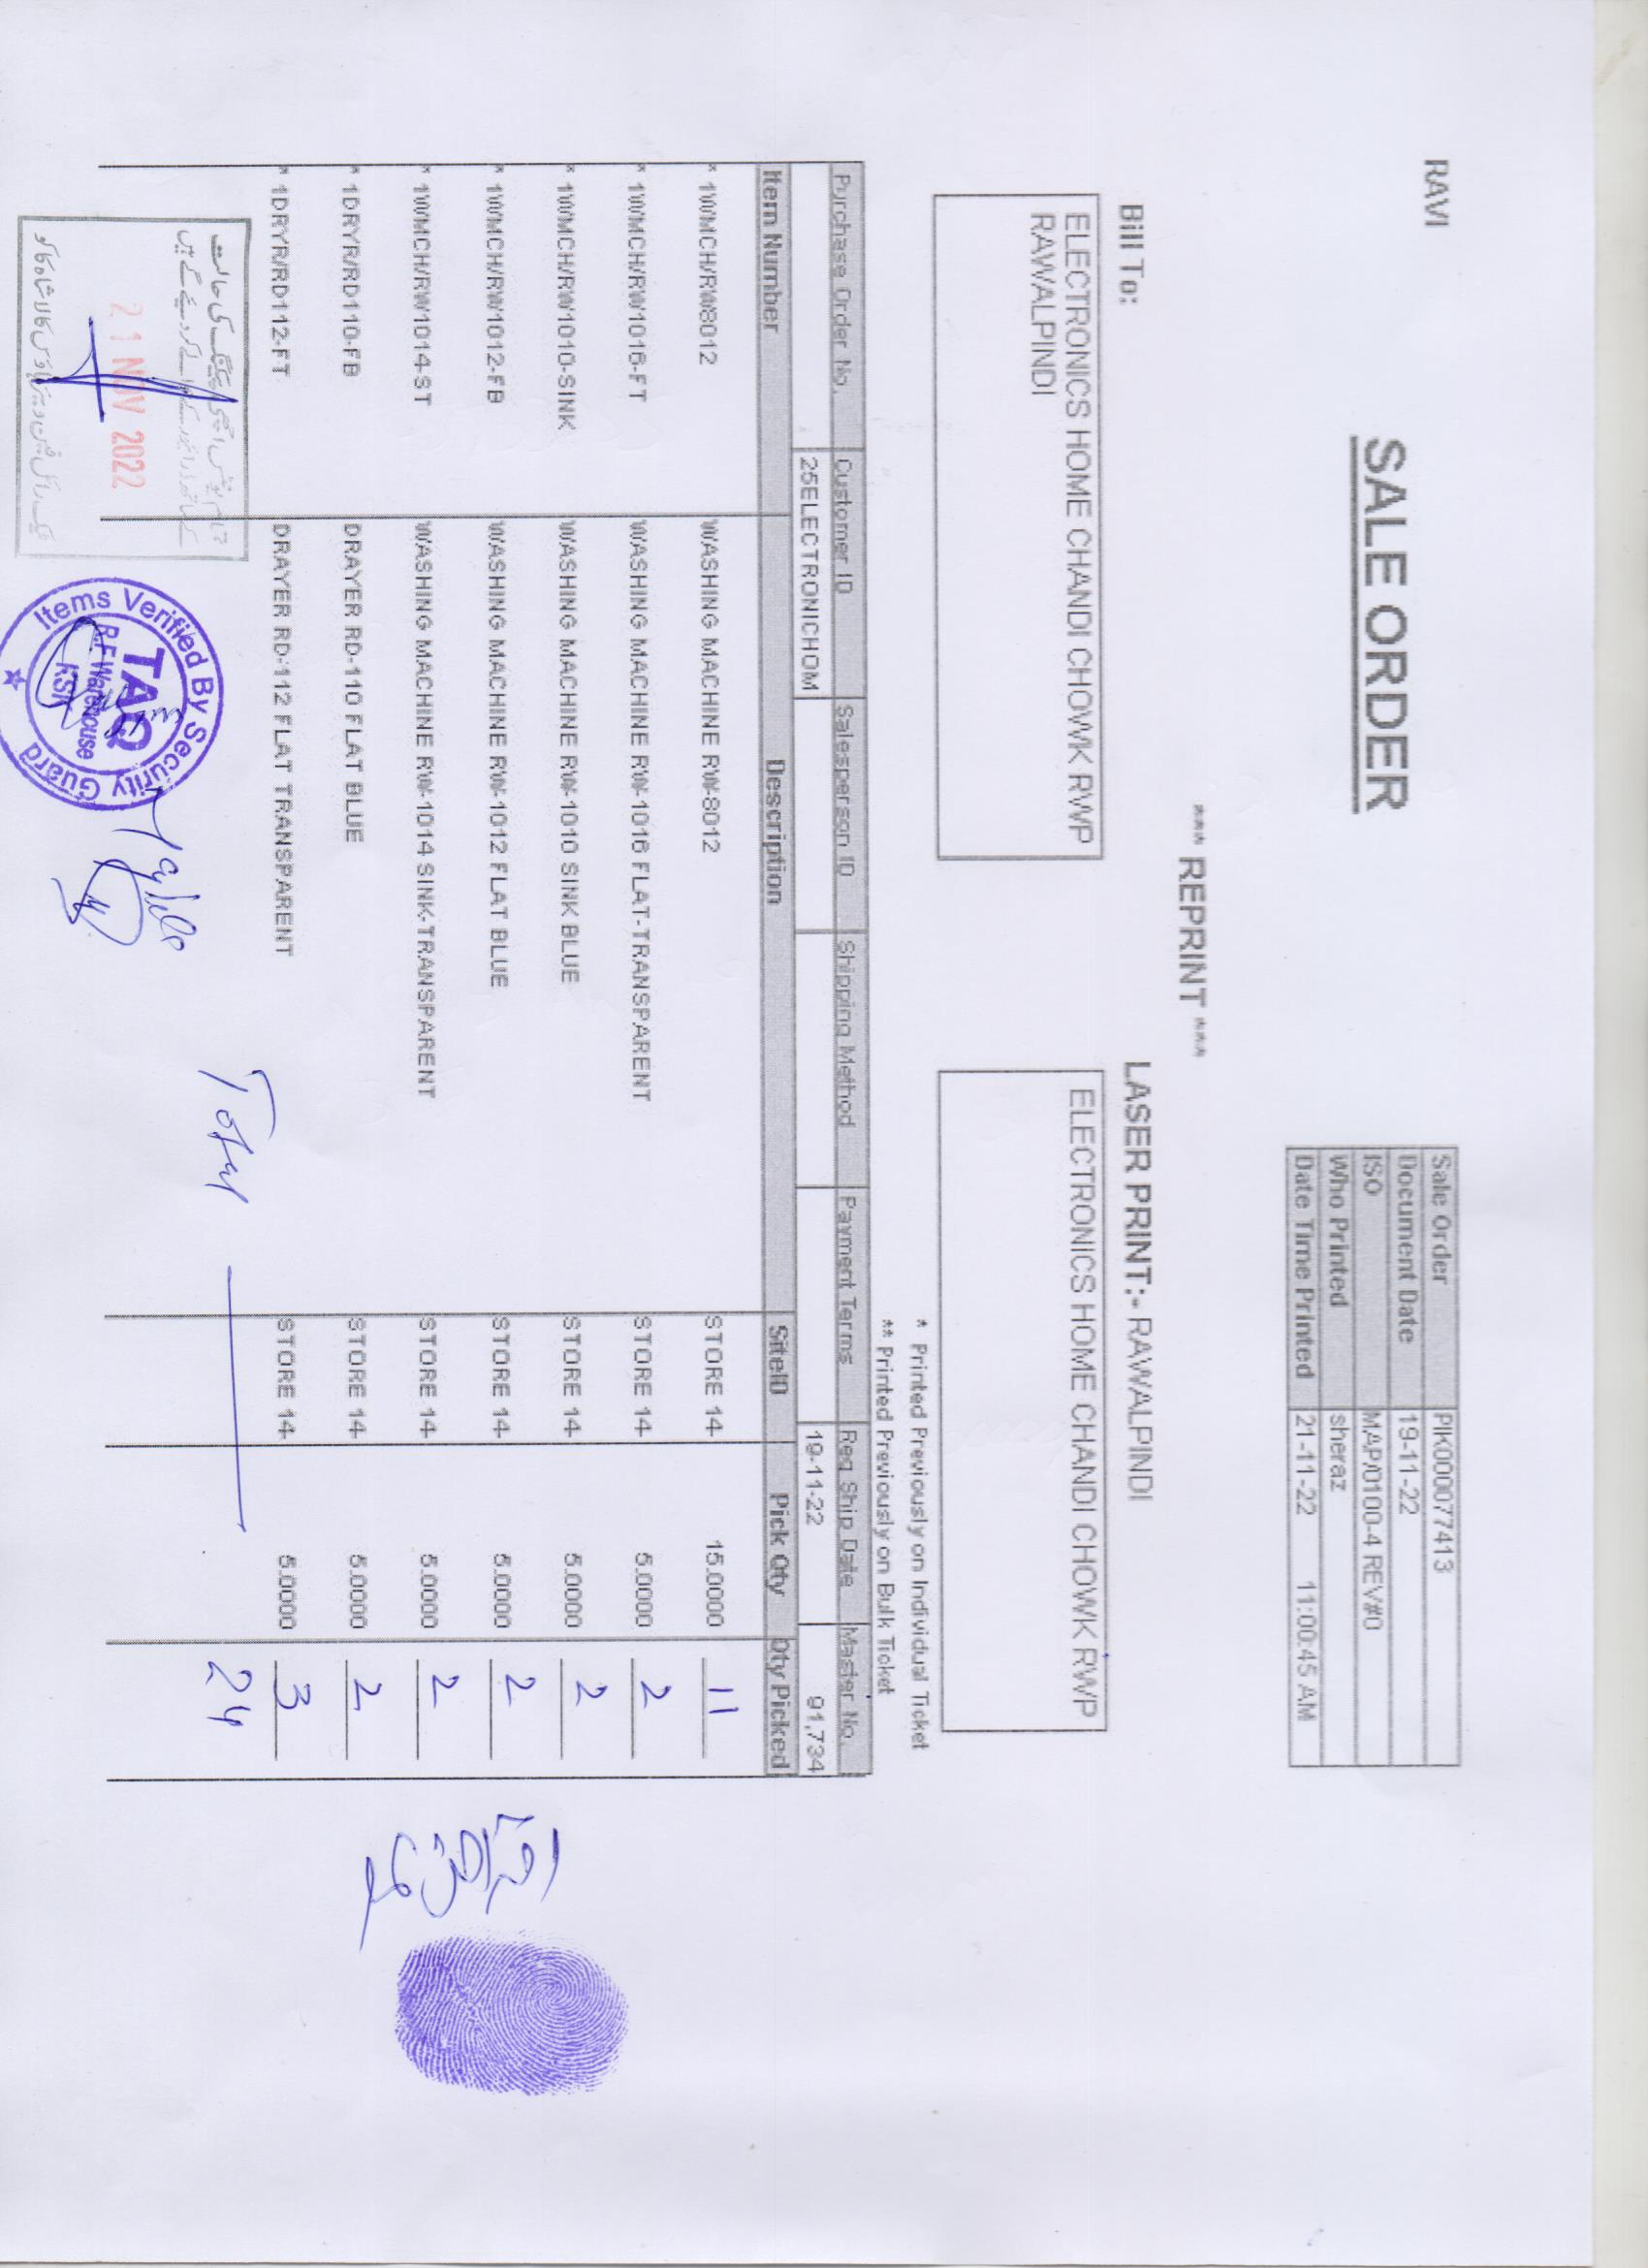 RAVI
SALE ORDER
Sale Order PIK000077413
Document Date 19-11-22
ISO MAP/0100-4 REV#0
Who Printed sheraz
Date Time Printed 21-11-22 11:00:45 AM
*** REPRINT ***
Bill To:
LASER PRINT:- RAWALPINDI
ELECTRONICS HOME CHANDI CHOWK RWP
RAWALPINDI
ELECTRONICS HOME CHANDI CHOWK RWP
* Printed Previously on Individual Ticket
** Printed Previously on Bulk Ticket
Purchase Order No. Customer ID Salesperson ID Shipping Method Payment Terms Req Ship Date Master No.
25ELECTRONICHOM 19-11-22 91,734
Item Number Description SiteID Pick Qty Qty Picked
* 1WMCH/RW8012 WASHING MACHINE RW-8012 STORE 14 15.0000 11
* 1WMCH/RW1016-FT WASHING MACHINE RW-1016 FLAT-TRANSPARENT STORE 14 5.0000 2
* 1WMCH/RW1010-SINK WASHING MACHINE RW-1010 SINK BLUE STORE 14 5.0000 2
* 1WMCH/RW1012-FB WASHING MACHINE RW-1012 FLAT BLUE STORE 14 5.0000 2
* 1WMCH/RW1014-ST WASHING MACHINE RW-1014 SINK-TRANSPARENT STORE 14 5.0000 2
* 1DRYR/RD110-FB DRAYER RD-110 FLAT BLUE STORE 14 5.0000 2
* 1DRYR/RD112-FT DRAYER RD-112 FLAT TRANSPARENT STORE 14 5.0000 3
Total 24
تمام یونٹس اچھی پیکنگ کی حالت
کے ساتھ ڈرائیور کے حوالے کر دیئے گے ہیں
21 NOV 2022
ٹیک رائل فین ویئر ہاؤس کالا شاہ کاکو
Items Verified By Security Guard
TAQ
R.F Warehouse
KSK